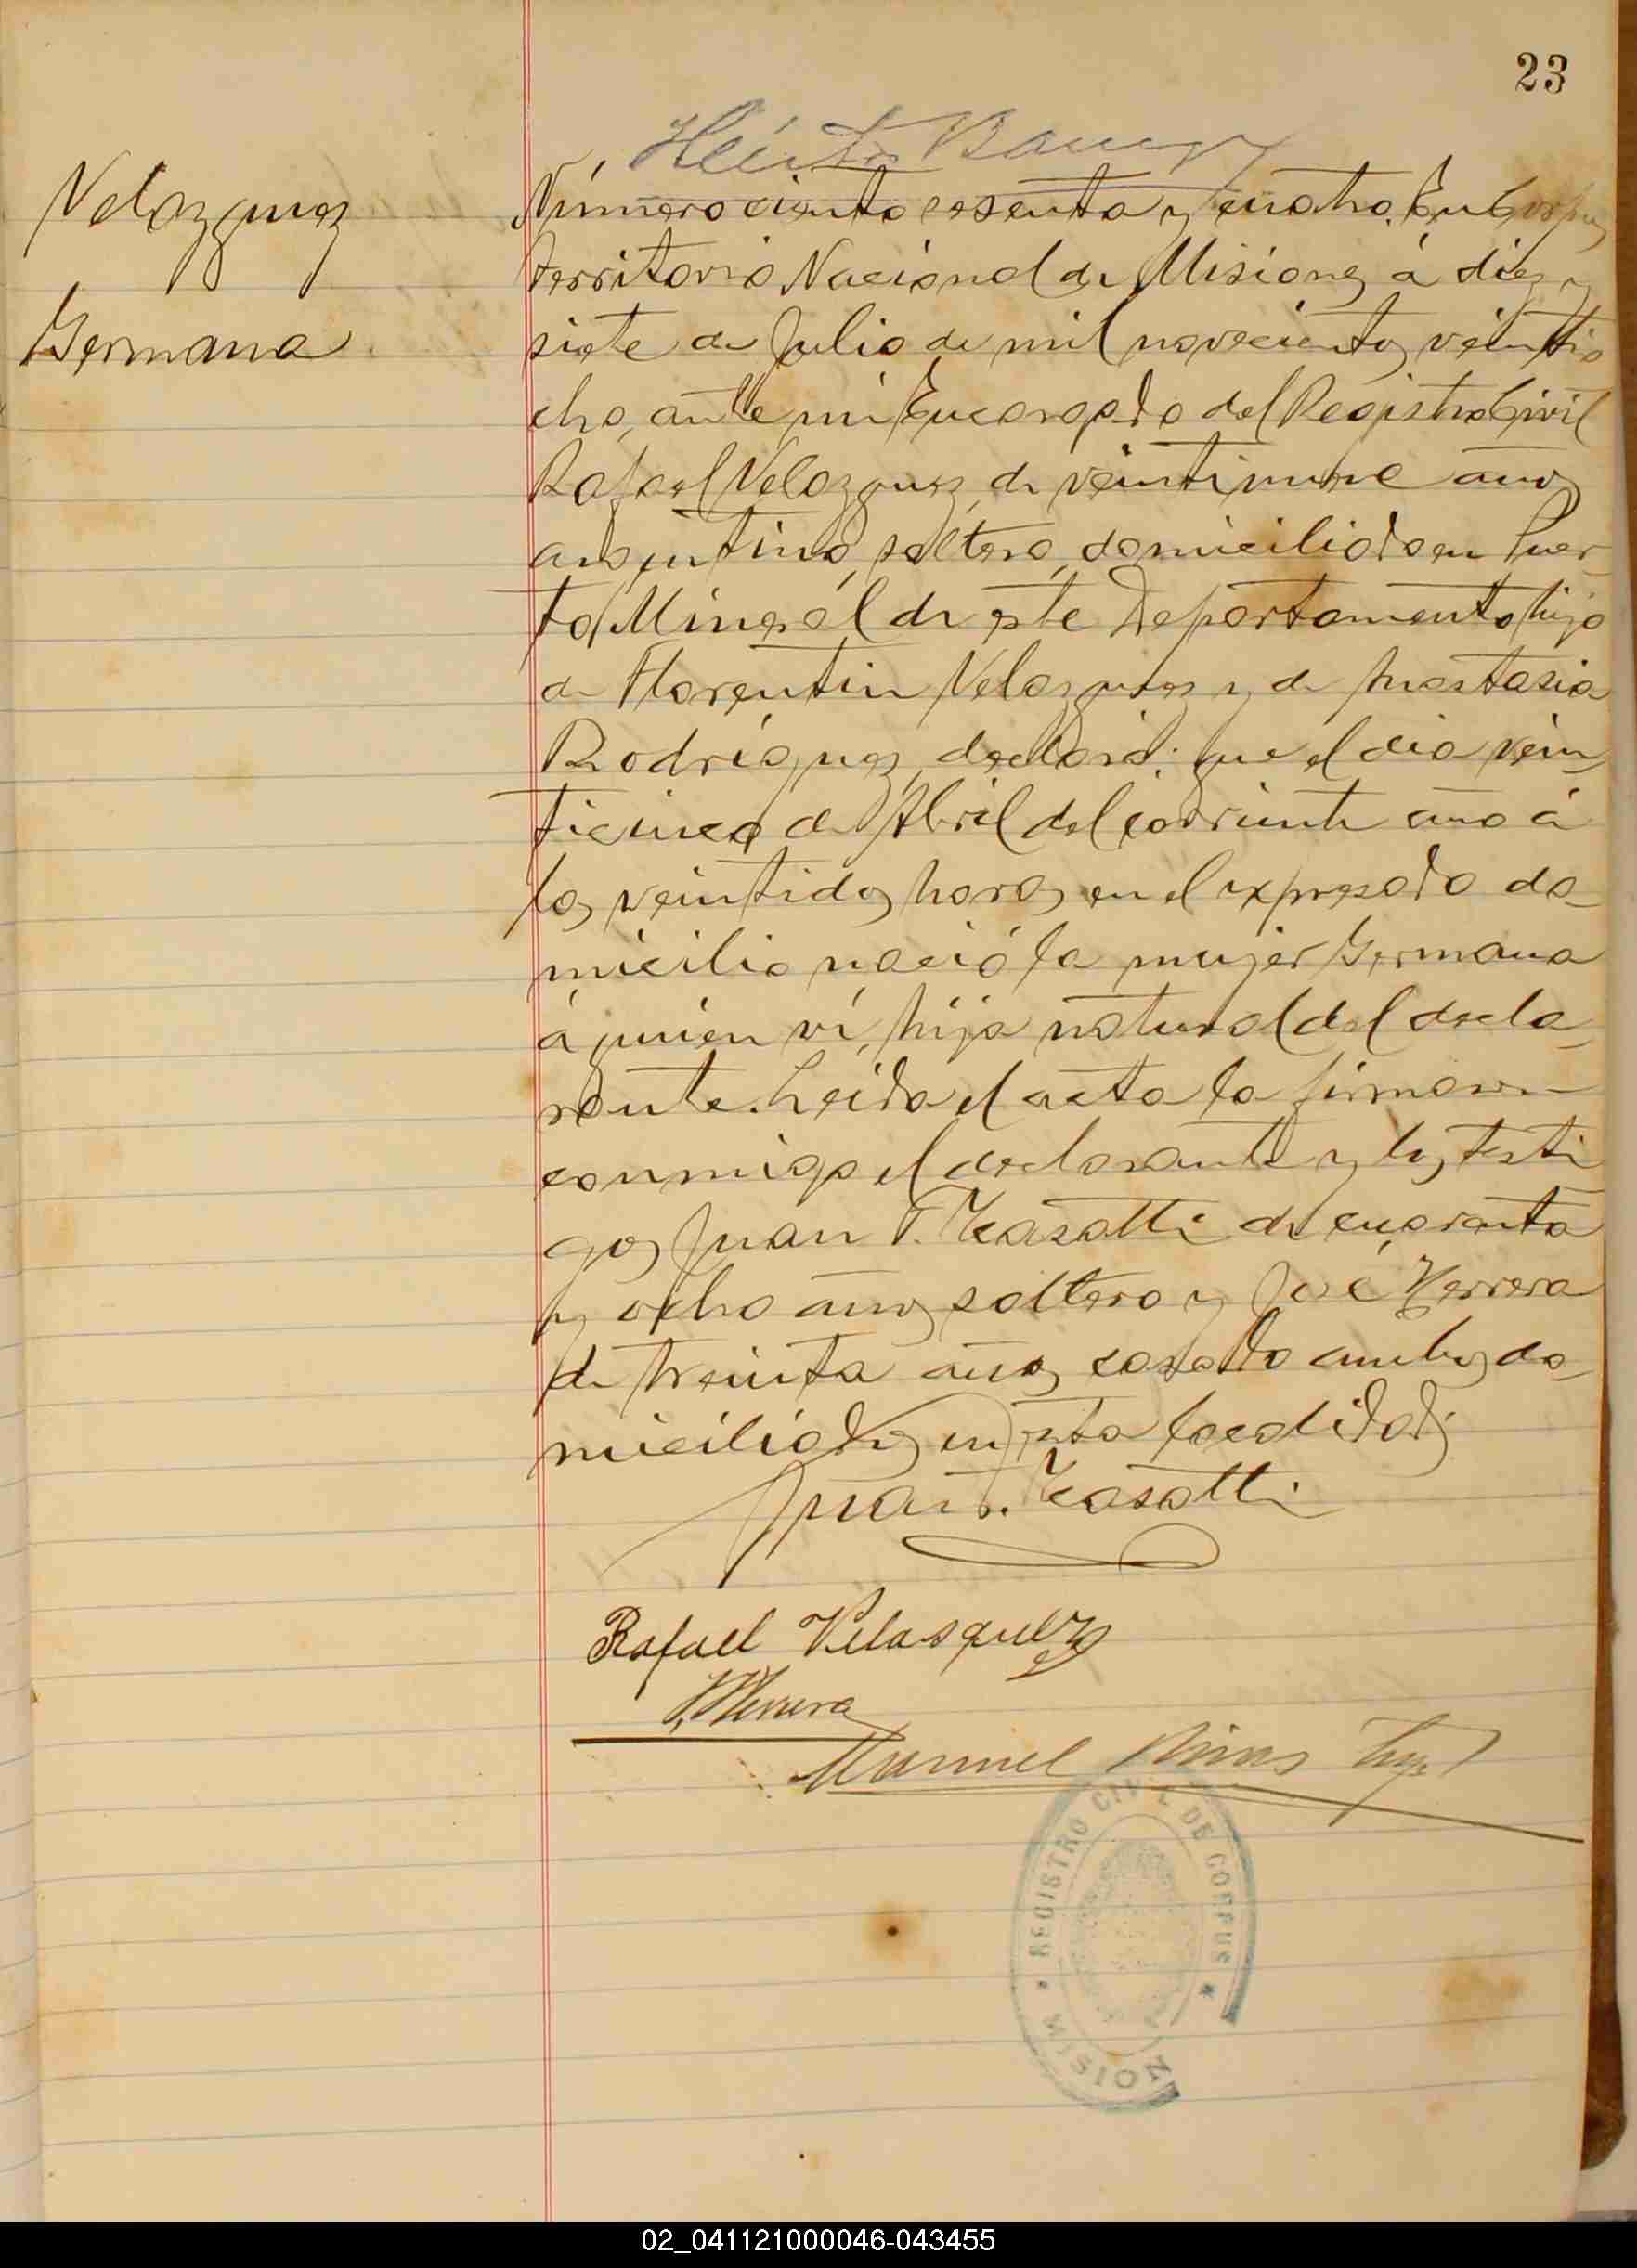 23
Velazquez
Germana
Número ciento sesenta y cuatro. En Corpus
Territorio Nacional de Misiones á diez y
siete de Julio de mil novecientos veintio
cho, ante mí Encargado del Registro Civil
Rafael Velazquez, de veintinueve años
argentino, soltero, domiciliado en Puer-
to Mineral de este Departamento, hijo
de Florentin Velazquez y de Anastasia
Rodríguez, declaró: que el dia vein
ticinco de Abril del corriente año á
las veintidos horas en el expresado do-
micilio nació la mujer Germana
á quien ví, hija natural del decla-
rante. Leida el acta la firmaron
conmigo el declarante y los testi
gos Juan T. Casatti de cuarenta
y ocho años soltero y José Herrera
de treinta años casado ambos do-
miciliados en esta localidad.
Juan T. Casatti
Rafael Velasquez
J. Herrera
Manuel
REGISTRO CIVIL DE CORPUS
MISION
02_041121000046-043455